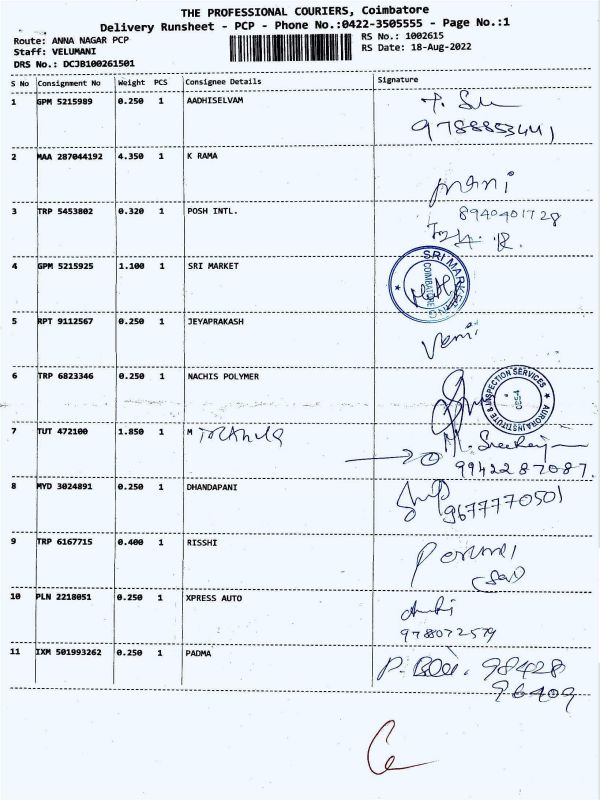 THE PROFESSIONAL COURIERS, Coimbatore
Delivery Runsheet - PCP - Phone No.:0422-3505555 - Page No.:1
Route: ANNA NAGAR PCP
RS No.: 1002615
Staff: VELUMANI
RS Date: 18-Aug-2022
DRS No.: DCJB100261501
S No Consignment No Weight PCS Consignee Details Signature
1 GPM 5215989 0.250 1 AADHISELVAM
2 MAA 287044192 4.350 1 K RAMA
mani
3 TRP 5453802 0.320 1 POSH INTL.
8940401728
4 GPM 5215925 1.100 1 SRI MARKET
SRI MARKETING
COIMBATORE
5 RPT 9112567 0.250 1 JEYAPRAKASH
6 TRP 6823346 0.250 1 NACHIS POLYMER
AURORA INSTITUTE & INSPECTION SERVICES
7 TUT 472100 1.850 1 M
9942287087.
8 MYD 3024891 0.250 1 DHANDAPANI
9677770501
9 TRP 6167715 0.400 1 RISSHI
10 PLN 2218051 0.250 1 XPRESS AUTO
11 IXM 501993262 0.250 1 PADMA
98428
96409